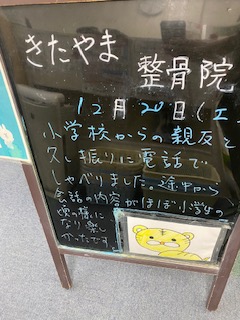 きたやま
整骨院
12月20日(土
小学校からの親友と
久し振りに電話で
しゃべりました。途中から
会話の内容がほぼ小学生の
頃の様に
なり楽し
かったです。